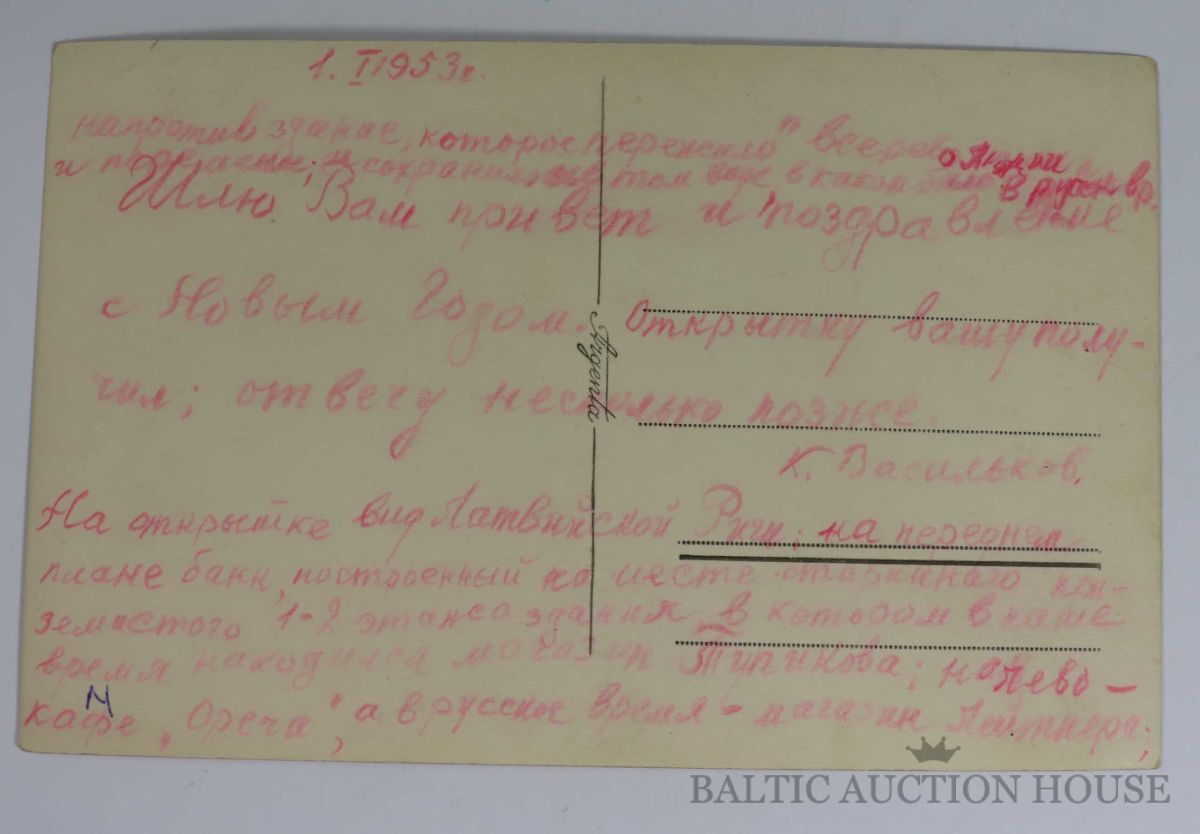 1. I 1953 г.
напротив здание, которое пережило "все
о Латвии
и сохранилось в том виде в каком было в русск. вр.
Шлю Вам привет и поздравление
с Новым Годом. Открытку вашу полу-
чил; отвечу несколько позже.
Argenta
К. Васильков.
На открытке вид Латвийской Риги: на переднем
плане банк, построенный на месте старинного при-
земистого 1-2 этажн. здания, в котором в наше
время находился магазин Тупикова; налево -
кафе „Ореча", а в русское время - магазин Лайтнера;
N
BALTIC AUCTION HOUSE